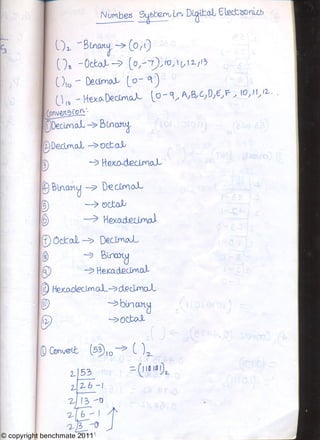 Number System in Digital Electronics
( )₂ - Binary → (0,1)
( )₈ - Octal → (0,-7), 10, 11, 12, 13
( )₁₀ - Decimal (0 - 9)
( )₁₆ - Hexa Decimal (0-9, A, B, C, D, E, F, 10, 11, 12..
Conversion:
① Decimal → Binary
② Decimal → octal
③ → Hexadecimal
④ Binary → Decimal
⑤ → octal
⑥ → Hexadecimal
⑦ Octal → Decimal
⑧ → Binary
⑨ → Hexadecimal
⑩ Hexadecimal → decimal
⑪ → binary
⑫ → octal
① Convert (53)₁₀ → ( )₂
2|53 = (110101)₂
2|26 - 1
2|13 - 0
2|6 - 1
2|3 - 0
© copyright benchmate 2011